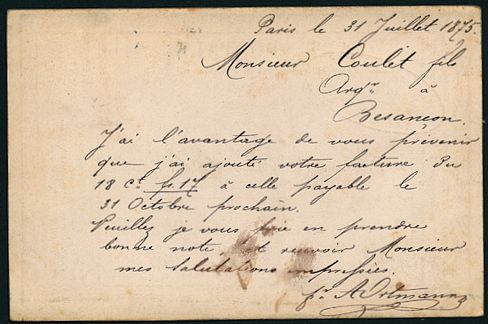 Paris le 31 Juillet 1875.
Monsieur Coulet fils
à
Besançon.
J'ai l'avantage de vous prévenir
que j'ai ajouté votre facture du
18 Ct fs. 17 à celle payable le
31 Octobre prochain.
Veuillez je vous prie en prendre
bonne note et recevoir Monsieur
mes salutations empressées.
A. Ortmann